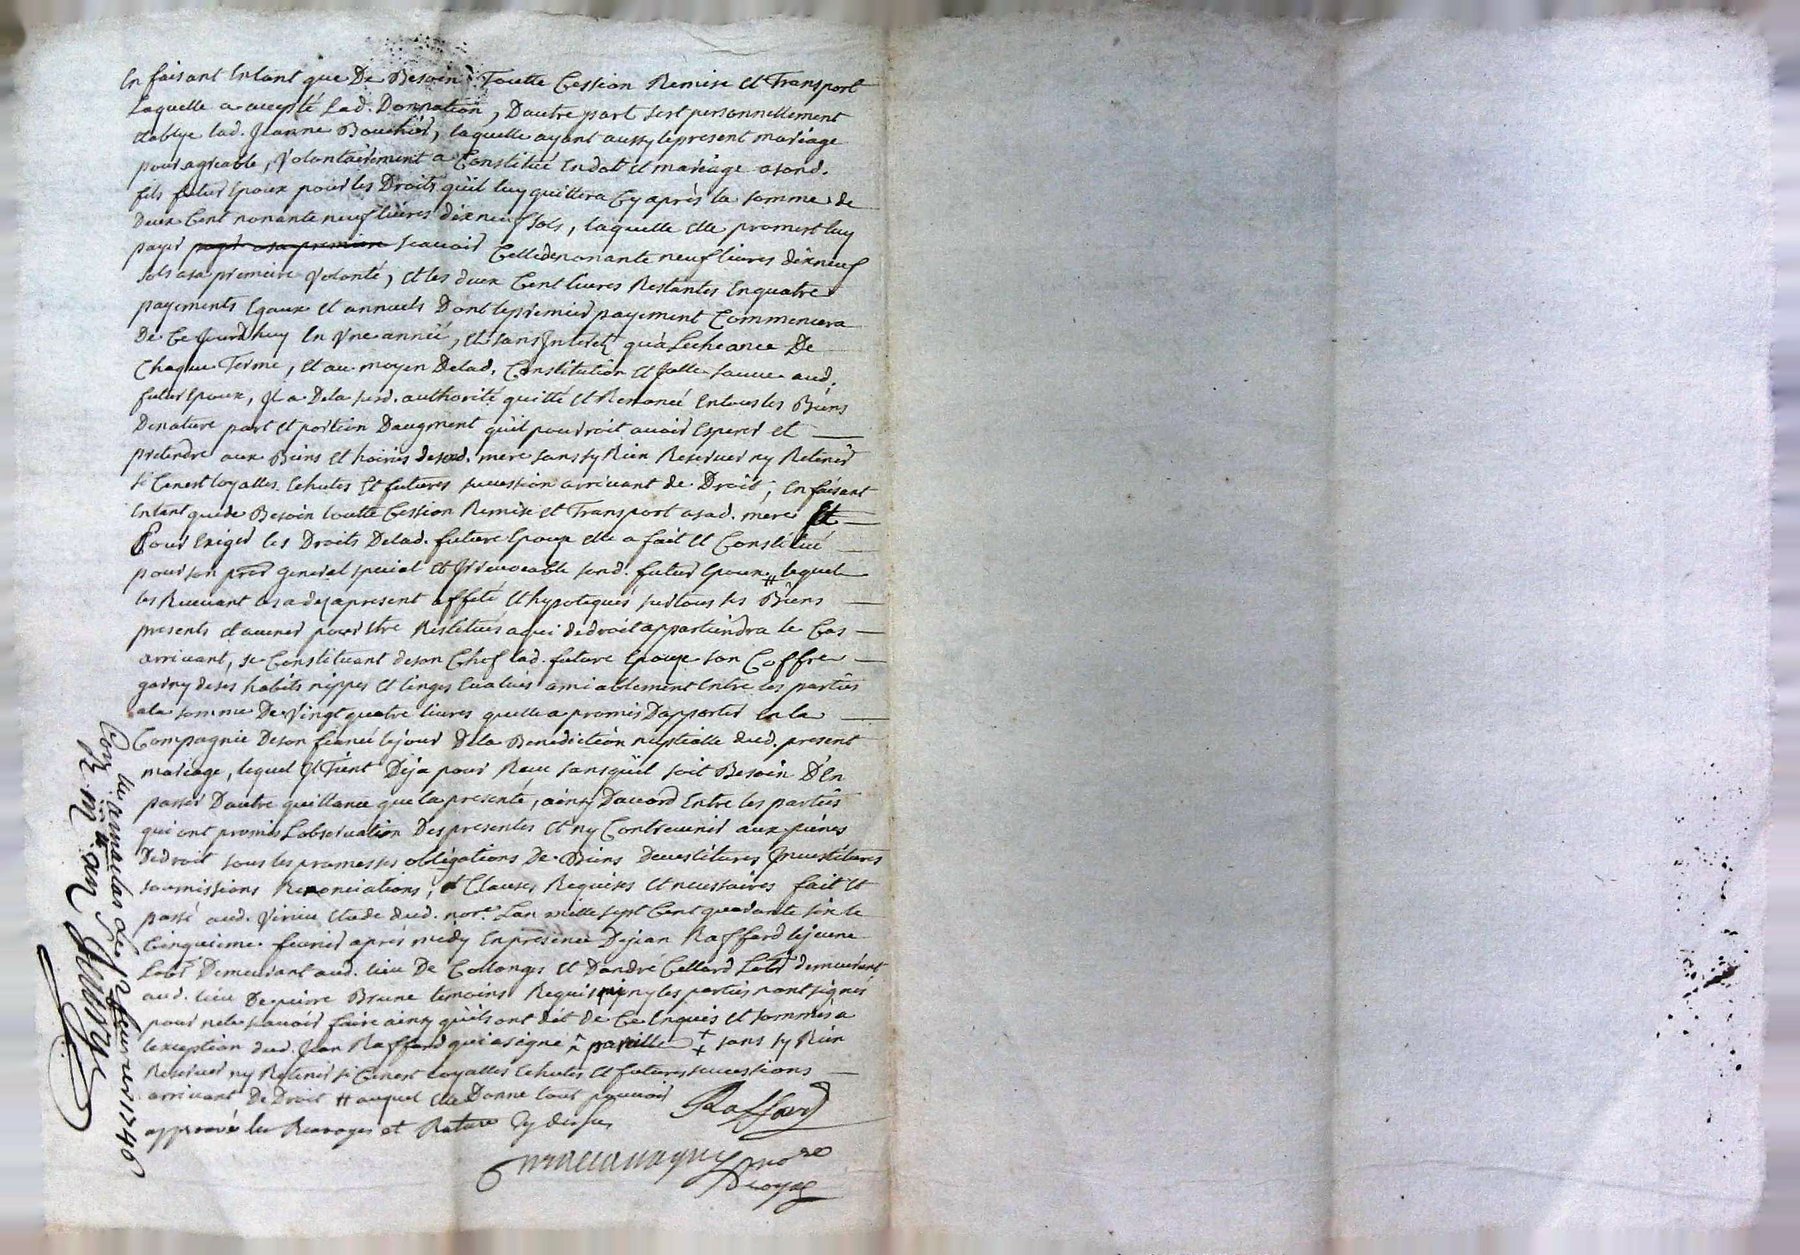 En faisant Entant que De Besoin Toutte Cession Remise et Transport
Laquelle a accepté Lad. Donnation, Dautre part sest personnellement
établye lad. Jeanne Bouchér, laquelle ayant aussy le present mariage
pour agreable, Volontairement a Constitué En dot et mariage a sond.
fils futur Epoux pour les Droits quil luy quittera Cy après la somme de
Deux Cent nonante neuf livres dixneuf sols, laquelle elle promest luy
payer payer a sa premiere scavoir Celle de nonante neuf livres dixneuf
sols a sa premiere Volonté, et les deux Cent livres Restantes En quatre
payements Egaux et annuels Dont le premier payement Commencera
De Ce Jourdhuy En Vne année, et sans Interet qu'à Lecheance De
Chaque Terme, et au moyen Delad. Constitution et faitte sauue aud.
futur Epoux, Il a Dela susd. authorité quitté et Renoncé En tous les Biens
De nature part et portion Daugment quil pourroit auoir Esperer et
pretendre aux Biens et hoiries de sad. mere sans sy Rien Reseruer ny Retenir
si Cenest loyalles Echutes et futures succession arriuant de Droit, En faisant
Entant que de Besoin toutte Cession Remise et Transport a sad. mere Et
Pour Exiger les Droits Delad. future Epouse elle a fait et Constitué
pour son procr general special et Irreuocable sond. futur Epoux # lequel
les Receuant les a dez a present affeté et hypotequés sur tous ses Biens
presents et auenir pour Etre Restitués a qui de droit appartiendra le Cas
arriuant, se Constituant de son Chef lad. future Epouse son Coffre
garny de ses habits nippes et linges Eualués amiablement Entre les parties
a la somme De Vingt quatre liures quelle a promis Dapporter En la
Compagnie De son fiancé le jour Dela Benediction nuptialle dud. present
mariage, lequel Il Tient Deja pour Receu sans quil soit Besoin D'En
passer Dautre quittance que la presente, ainsy Daccord Entre les parties
qui ont promis Lobseruation Des presentes et ny Contreuenir aux peines
De droit sous les promesses obligations De Biens Deuestitures Inuestitures
soumissions Renonciations, et Clauses Requises et necessaires fait et
passé aud. Virieu Etude dud. nore. Lan mille sept Cent quarante six le
Cinquieme feurier après midy En presence De Jean Raffard le jeune
Labr. Demeurant aud. lieu De Collonges et Dandré Cellard Labr. demeurant
aud. lieu De pierre Brune temoins Requis ny les parties n'ont signés
pour ne le scauoir faire ainsy quils ont dit de Ce Enquis et sommés a
lexception dud. Jean Raffard qui a signé ^ pareille ++ sans sy Rien
Reseruer ny Retenir si Cenest loyalles Echutes et futures successions
arriuant De Droit # auquel elle Donne tout pouuoir
approuué les Renvoyes et Rature Cy dessus
Raffard
nore
Royal
Con. le 12 feurier 1746